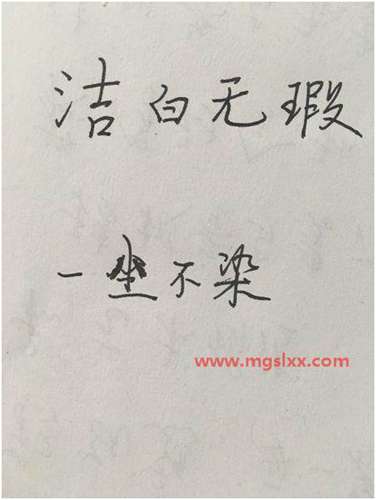 洁白无瑕
一尘不染
www.mgslxx.com